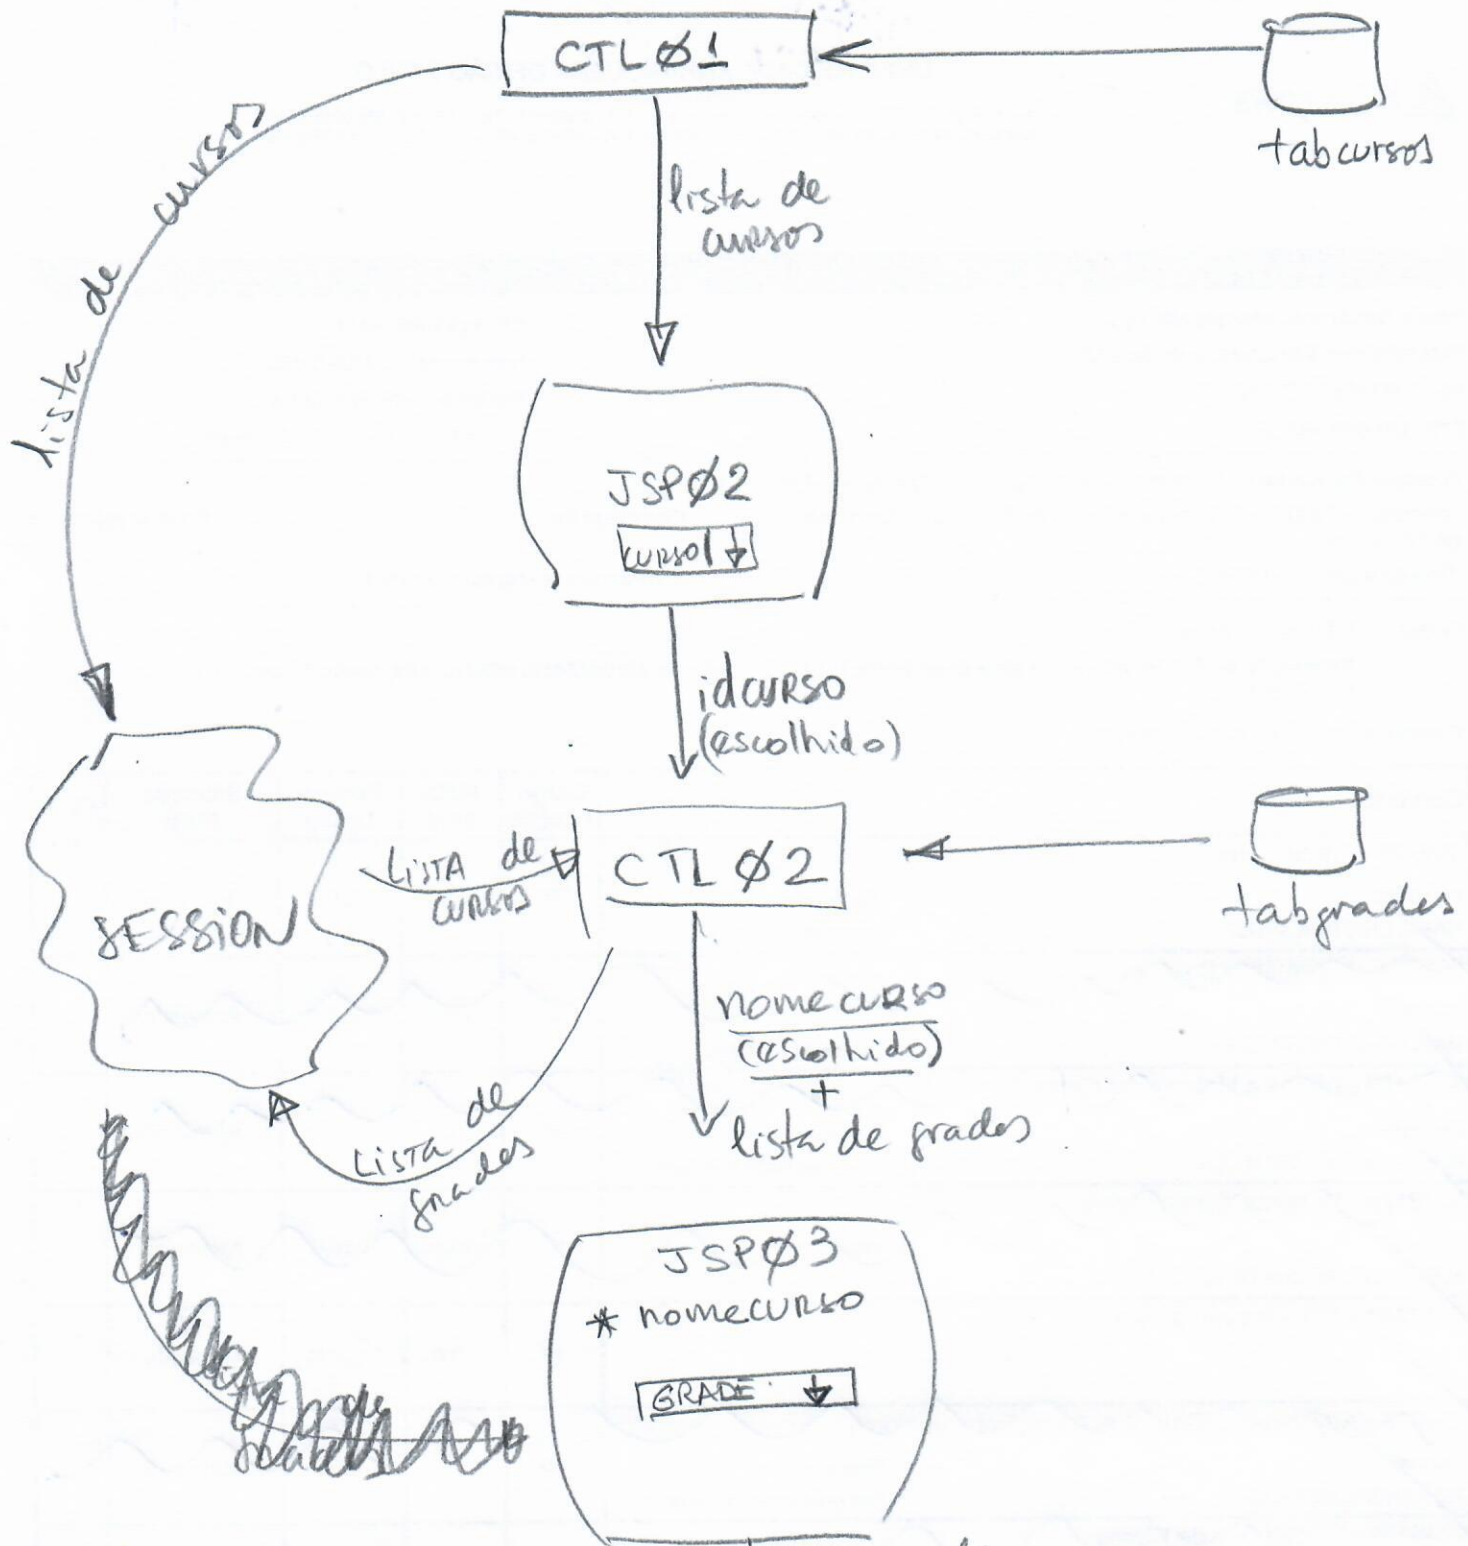 CTLØ1
tabcursos
lista de
cursos
lista de cursos
JSPØ2
CURSO
idcurso
(escolhido)
LISTA de
cursos
CTLØ2
tabgrades
SESSION
nomecurso
(escolhido)
+
lista de grades
LISTA de
grades
JSPØ3
* nomecurso
GRADE